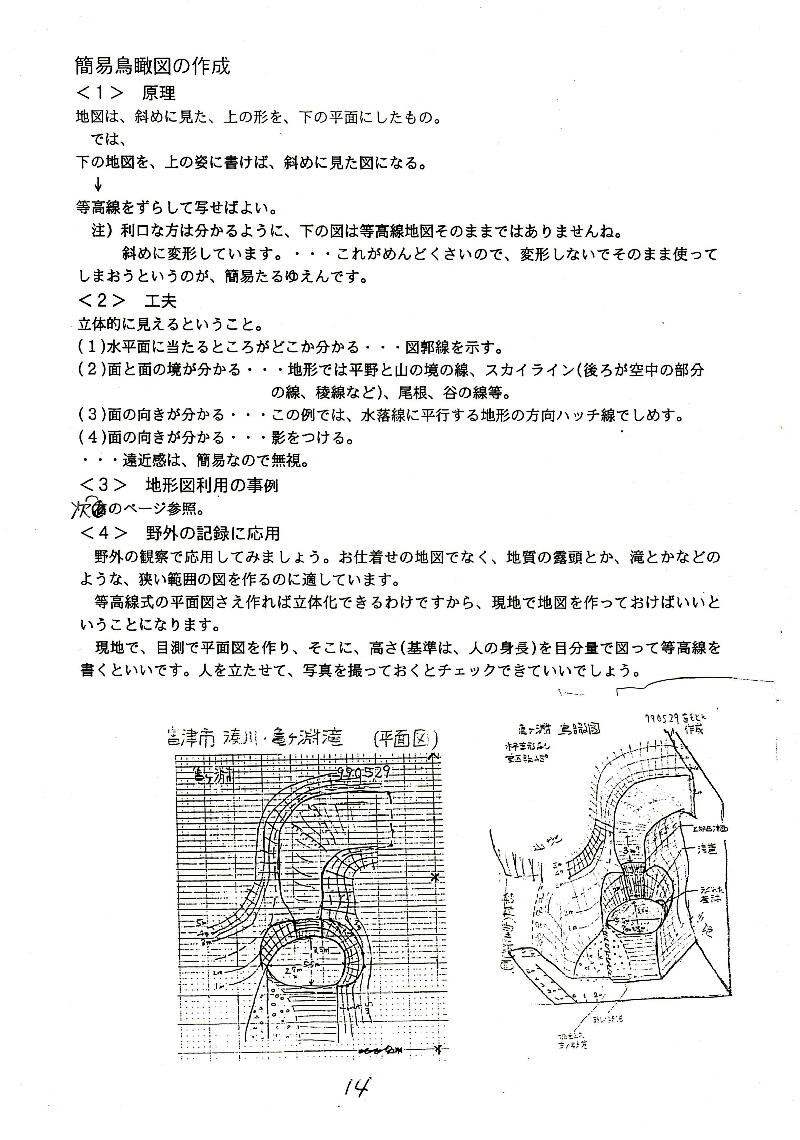 簡易鳥瞰図の作成
＜１＞　原理
地図は、斜めに見た、上の形を、下の平面にしたもの。
では、
下の地図を、上の姿に書けば、斜めに見た図になる。
↓
等高線をずらして写せばよい。
注）利口な方は分かるように、下の図は等高線地図そのままではありませんね。
斜めに変形しています。・・・これがめんどくさいので、変形しないでそのまま使って
しまおうというのが、簡易たるゆえんです。
＜２＞　工夫
立体的に見えるということ。
(１)水平面に当たるところがどこか分かる・・・図郭線を示す。
(２)面と面の境が分かる・・・地形では平野と山の境の線、スカイライン(後ろが空中の部分
の線、稜線など)、尾根、谷の線等。
(３)面の向きが分かる・・・この例では、水落線に平行する地形の方向ハッチ線でしめす。
(４)面の向きが分かる・・・影をつける。
・・・遠近感は、簡易なので無視。
＜３＞　地形図利用の事例
次のページ参照。
＜４＞　野外の記録に応用
野外の観察で応用してみましょう。お仕着せの地図でなく、地質の露頭とか、滝とかなどの
ような、狭い範囲の図を作るのに適しています。
等高線式の平面図さえ作れば立体化できるわけですから、現地で地図を作っておけばいいと
いうことになります。
現地で、目測で平面図を作り、そこに、高さ(基準は、人の身長)を目分量で図って等高線を
書くといいです。人を立たせて、写真を撮っておくとチェックできていいでしょう。
富津市 湊川・亀ヶ淵滝　(平面図)
亀ヶ淵　990529
5m
2m
1m
3.5m
5.5m
5m
亀ヶ淵 鳥瞰図
990529
作成
滝壺
14